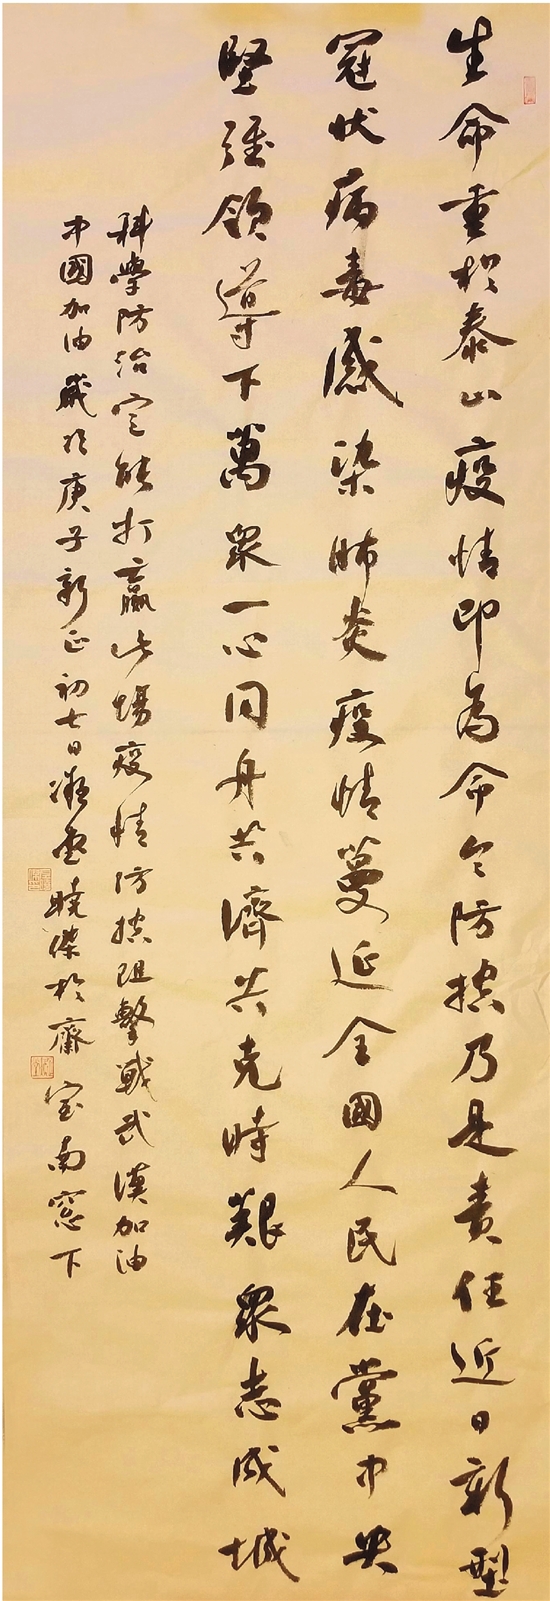 生命重於泰山疫情即为命令防控乃是责任近日新型
冠状病毒感染肺炎疫情蔓延全國人民在黨中央
堅强领導下萬眾一心同舟共濟共克時艱眾志成城
科學防治定能打赢此場疫情防控阻擊戰武漢加油
中國加油歲次庚子新正初七日 曉傑於齋室南窓下